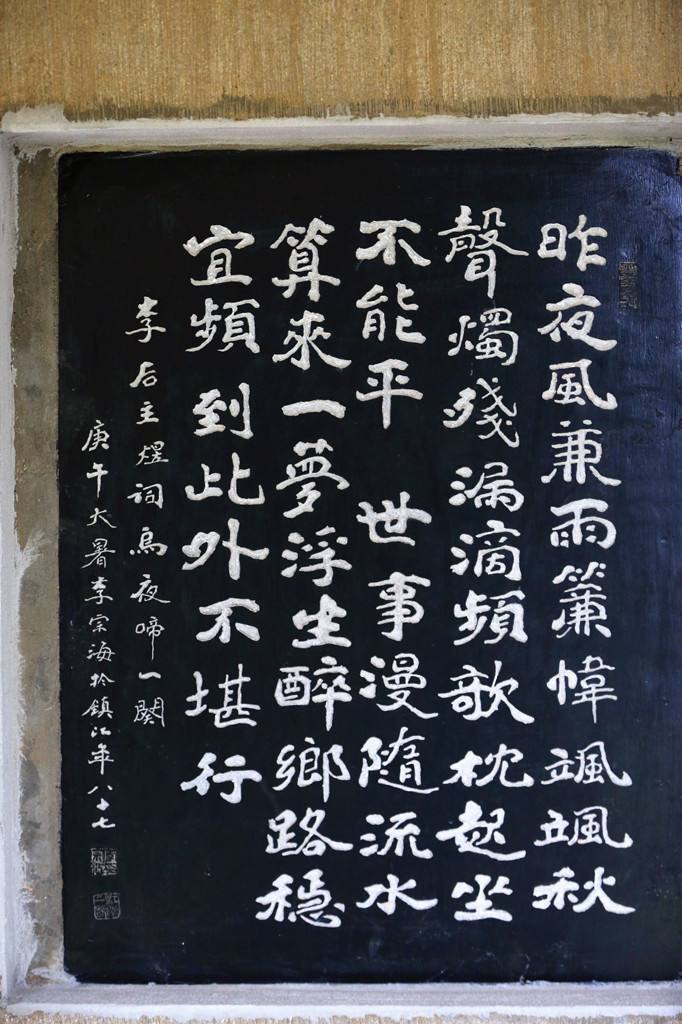 昨夜風兼雨簾幃颯颯秋
聲燭殘漏滴頻欹枕起坐
不能平 世事漫隨流水
算來一夢浮生醉鄉路穩
宜頻到此外不堪行
李后主煜詞烏夜啼一闋
庚午大暑李宗海於鎮江年八十七